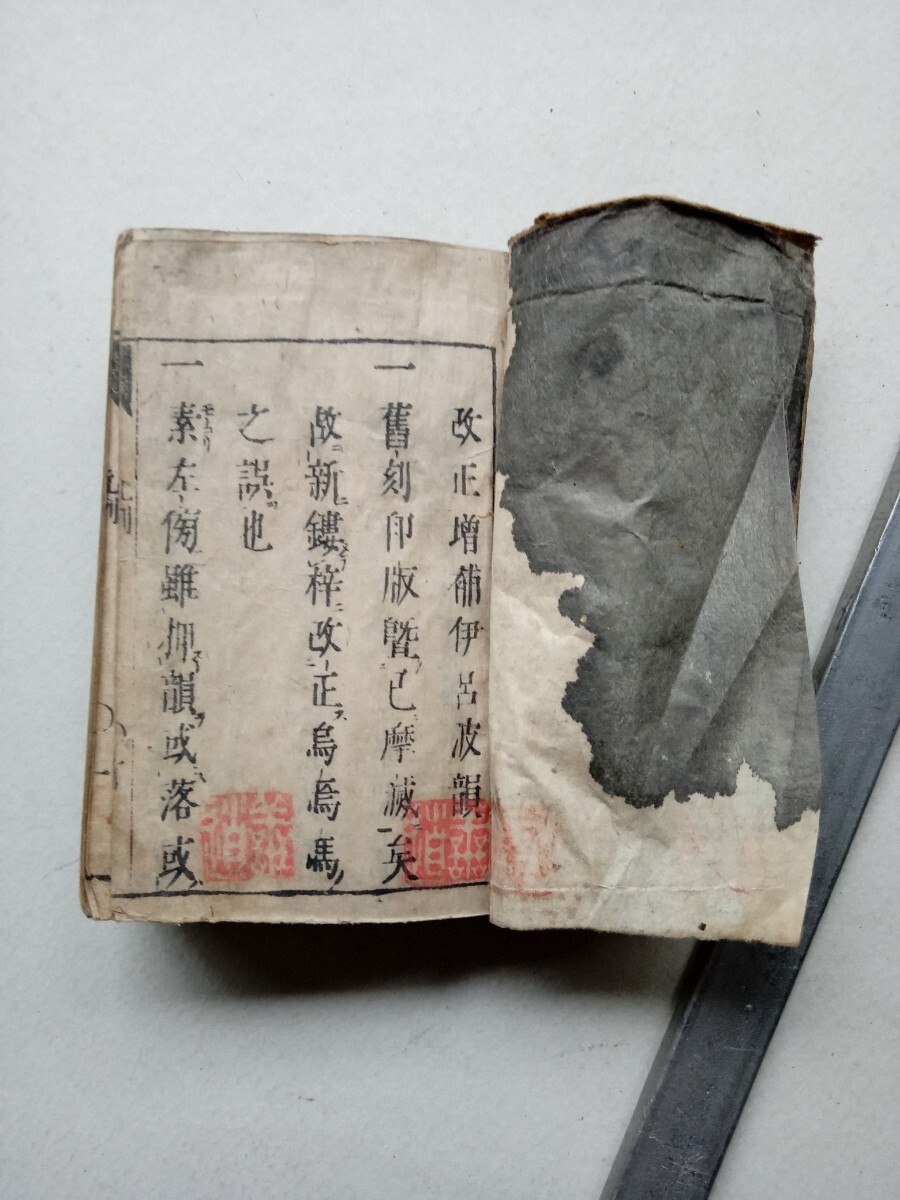 改正增補伊呂波韻
一舊刻印版曁已摩滅矣
故新鏤梓改正烏焉馬
之誤也
一素左傍雖押韻或落或